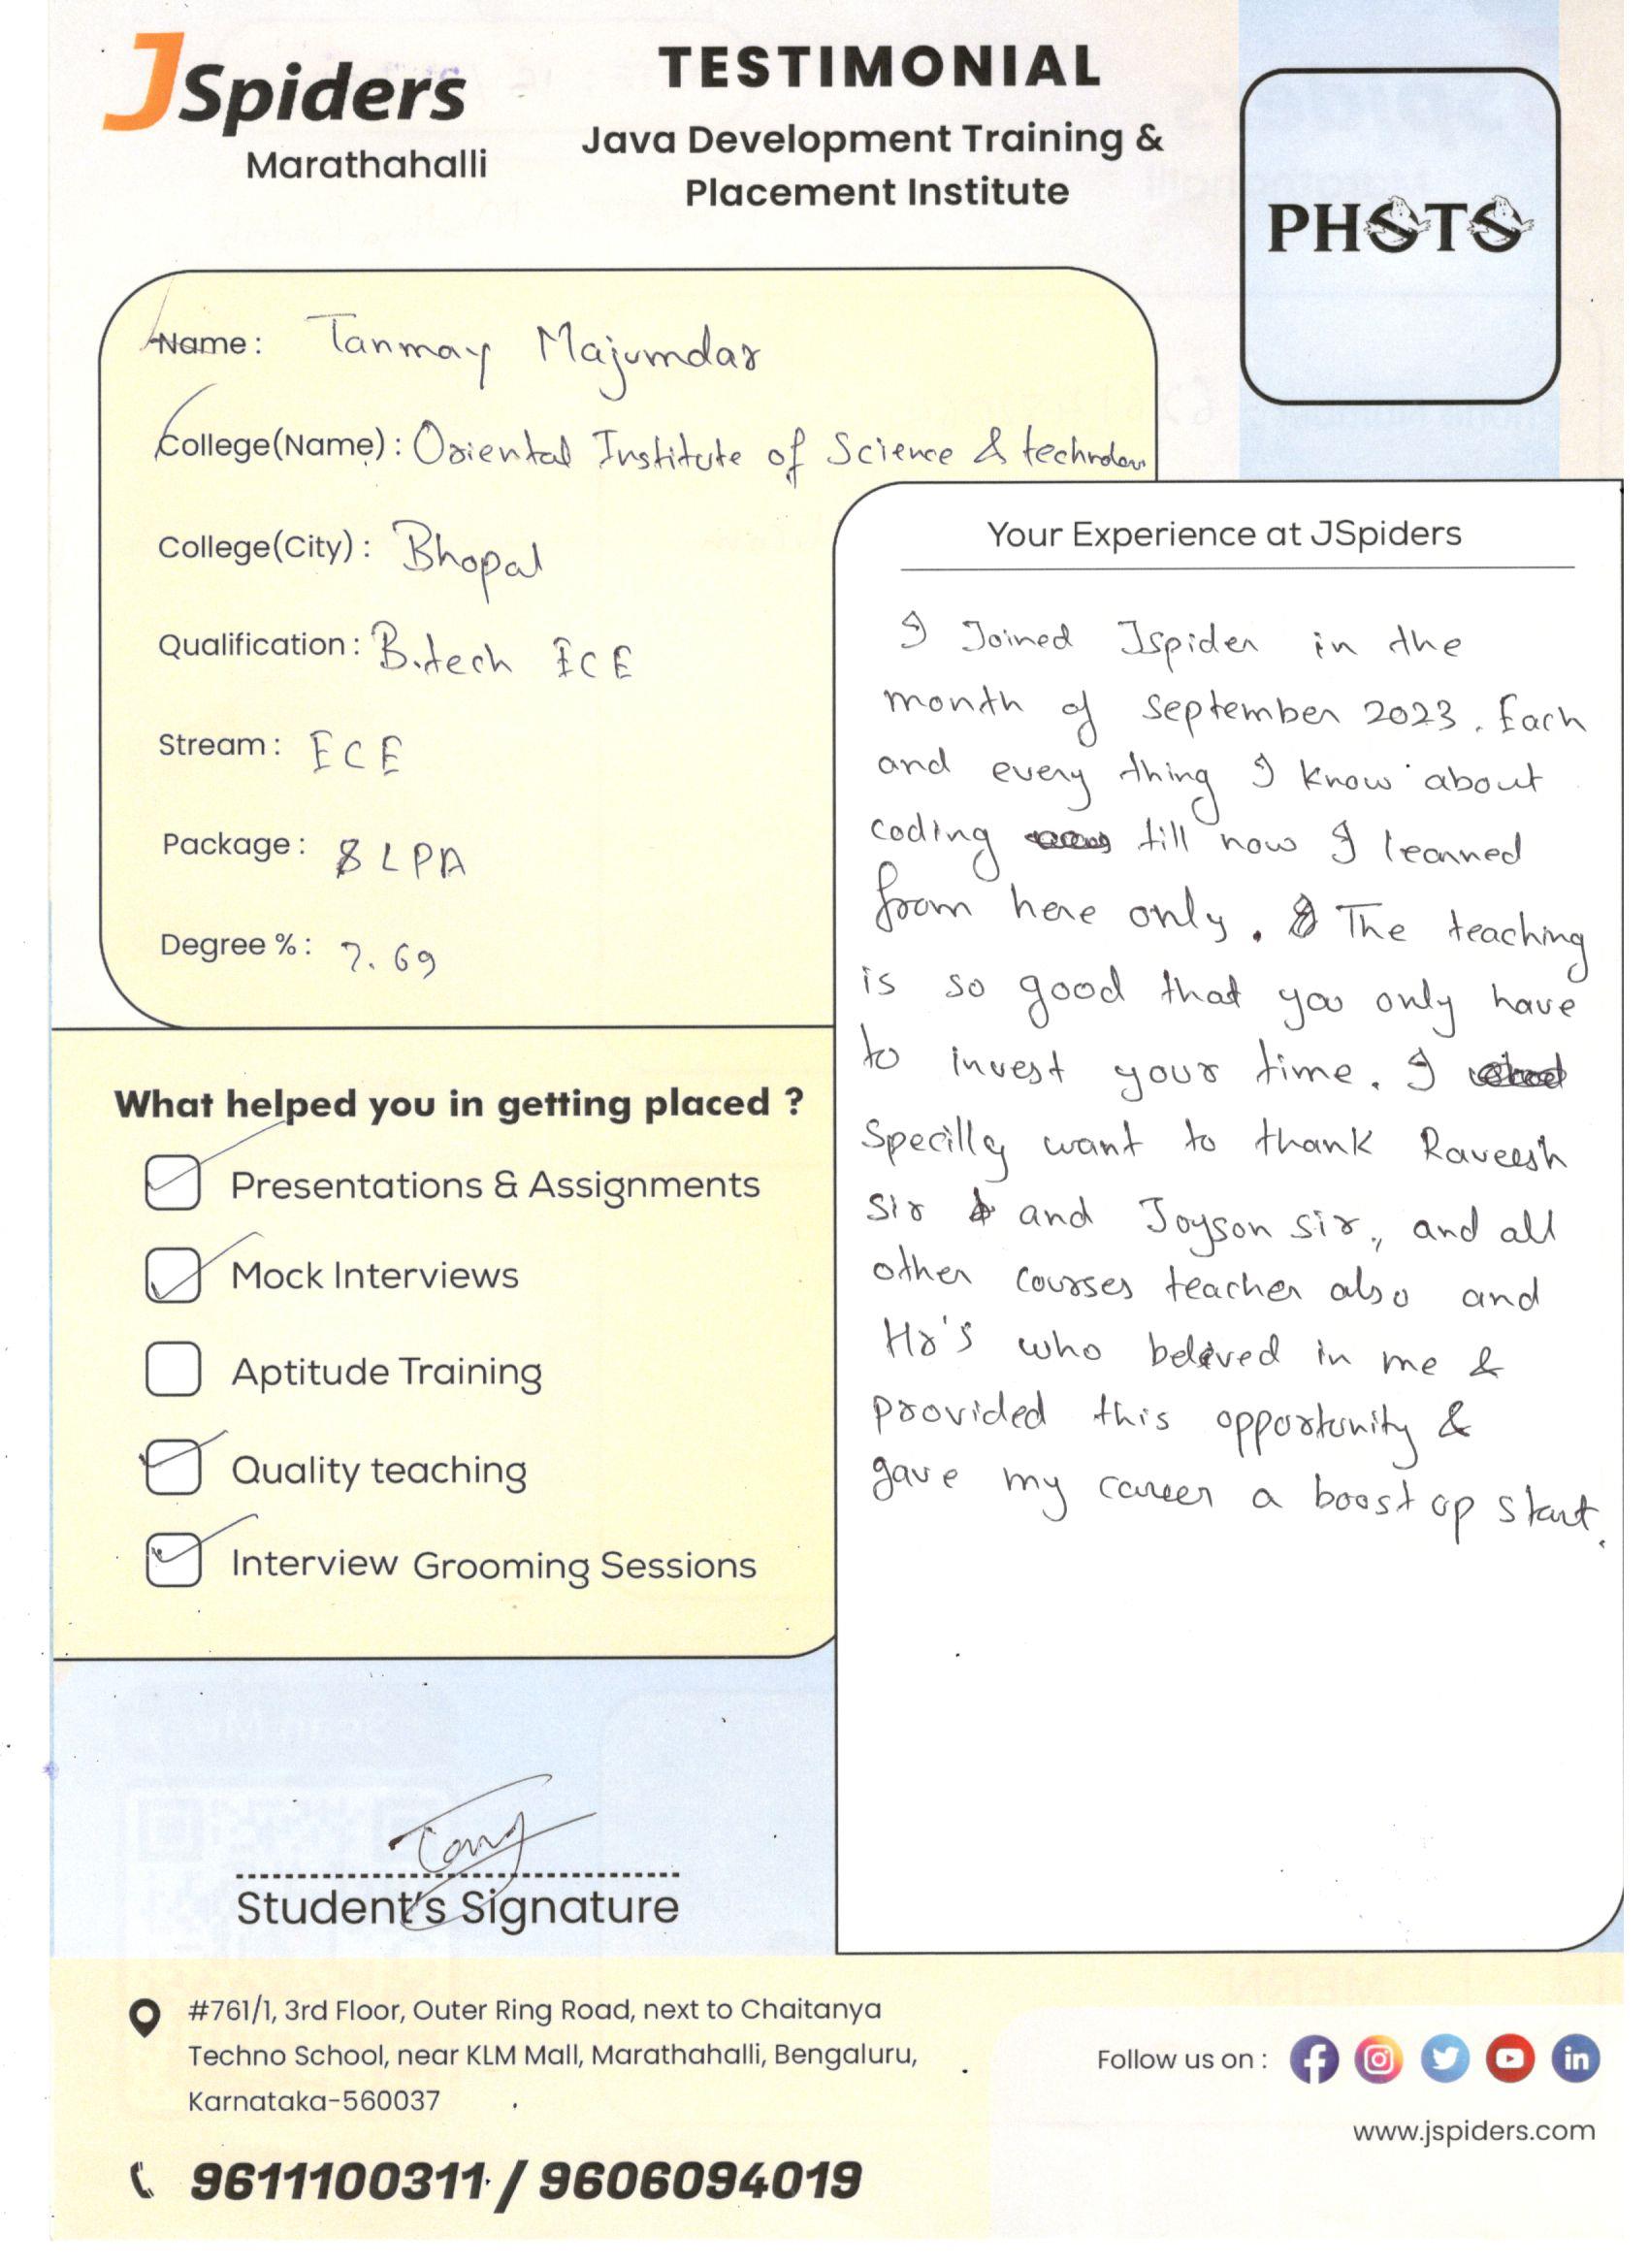 JSpiders
Marathahalli
TESTIMONIAL
Java Development Training &
Placement Institute
PHOTO
Name : Tanmay Majumdar
College(Name) : Oriental Institute of Science & technolow
College(City) : Bhopal
Qualification : B.tech ECE
Stream : ECE
Package : 8 LPA
Degree % : 7.69
What helped you in getting placed ?
Presentations & Assignments
Mock Interviews
Aptitude Training
Quality teaching
Interview Grooming Sessions
Your Experience at JSpiders
I Joined Jspider in the
month of september 2023. Each
and every thing I know about
coding till now I learned
from here only. The teaching
is so good that you only have
to invest your time. I
specilly want to thank Raveesh
sir and Joyson sir, and all
other courses teacher also and
Hr's who belived in me &
provided this opportunity &
gave my career a boost up start.
Student's Signature
#761/1, 3rd Floor, Outer Ring Road, next to Chaitanya
Techno School, near KLM Mall, Marathahalli, Bengaluru,
Karnataka-560037
9611100311 / 9606094019
Follow us on :
www.jspiders.com